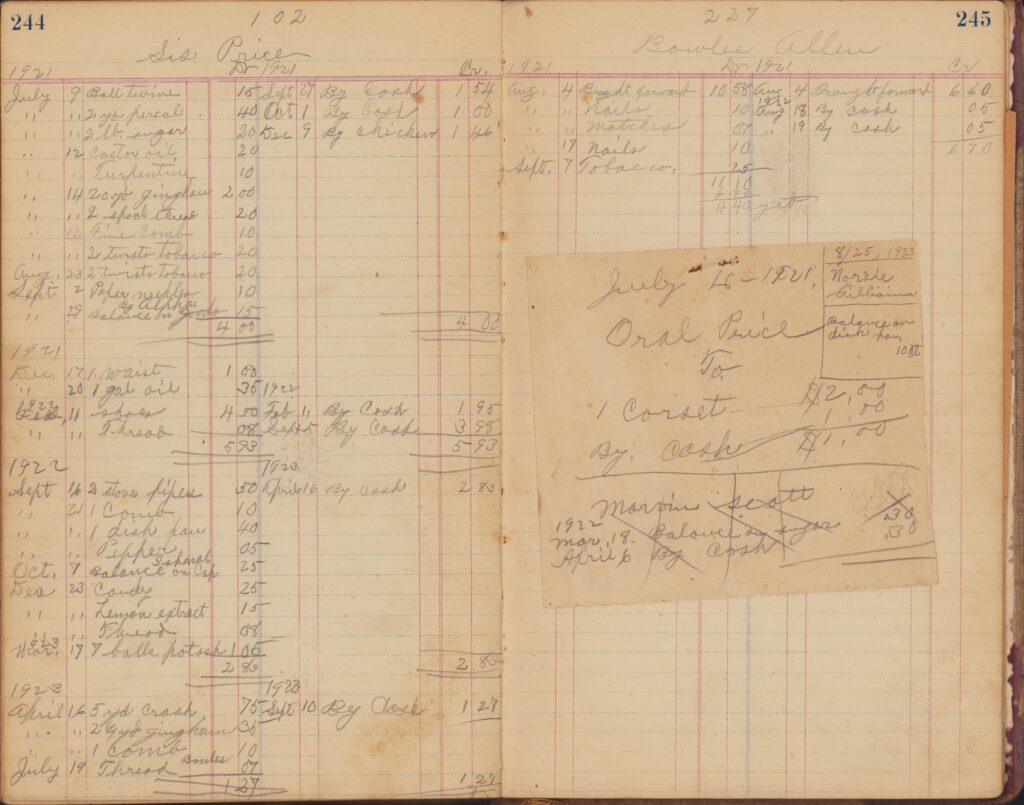 244
102
Sis Price
1921 Dr 1921 Cr.
July 9 Ball twine 15 Sept 27 By Cash 1 54
" " 2 yo percal 40 Oct 1 By Cash 1 00
" " 2 lb. sugar 20 Dec 9 By Chickens 1 46
" 12 Castor oil, 20
" " Turpentine 10
" 14 20 yd gingham 2 00
" " 2 spool thread 20
" 16 Fine Comb 10
" " 2 twists tobacco 20
Aug. 23 2 twists tobacco 20
Sept 2 Paper needles 10
By Alpha
" 29 Balance on goods 15
4 00 4 00
1921
Dec. 17 1 waist 1 00
" 20 1 gal oil 35 1922
1922
Feb. 11 Shoes 4 50 Feb 11 By Cash 1 95
" " Thread 08 Sept 5 By Cash 3 98
5 93 5 93
1922 1923
Sept 16 2 stove pipes 50 April 16 By Cash 2 83
" 21 1 Comb 10
" " 1 dish pan 40
" " Pepper 05
Ishmal
Oct. 7 Balance on Cap 25
Dec 23 Candy 25
" " Lemon extract 15
" " Thread 08
1923
Mar. 17 7 balls potash 1 05
2 83 2 83
1923 1923
April 16 5 yd crash 75 Sept 10 By Cash 1 27
" " yd gingham 35
" " 1 Comb 10
July 19 Thread Bowles 07
1 27 1 27
227
245
Bowles Allen
1921 Dr 1921 Cr
Aug. 4 Brught forward 10 58 Aug 4 Brought forward 6 60
1922
" " Nails 10 Aug 18 By Cash 05
" " Matches 07 " 19 By Cash 05
" 17 Nails 10 6 70
Sept. 7 Tobacco. 25
11 10
6 70
4 40 yet
8/25, 1923
Norsie
Gilliam
Balance on
dish pan,
10 ct
July 16-1921,
Oral Price
To.
1 Corset $2,00
1,00
By. Cash $1,00
Marvin Scott
1922
Mar, 18. Balance on sugar .30
April 6 By Cash .30